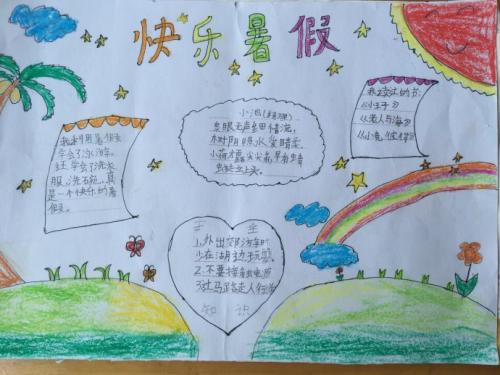 快乐暑假
我利用暑假
学会了游泳。
还学会了洗衣
服、洗石砲、真
是一个快乐的暑
假。
小池(杨万里)
泉眼无声惜细流，
树阴照水爱晴柔。
小荷才露尖尖角，早有蜻
蜓立上头。
我读过的书：
《小王子》
《老人与海》
安全
1.外出
少在湖边玩耍。
2.不要
过马路走人行道
知识